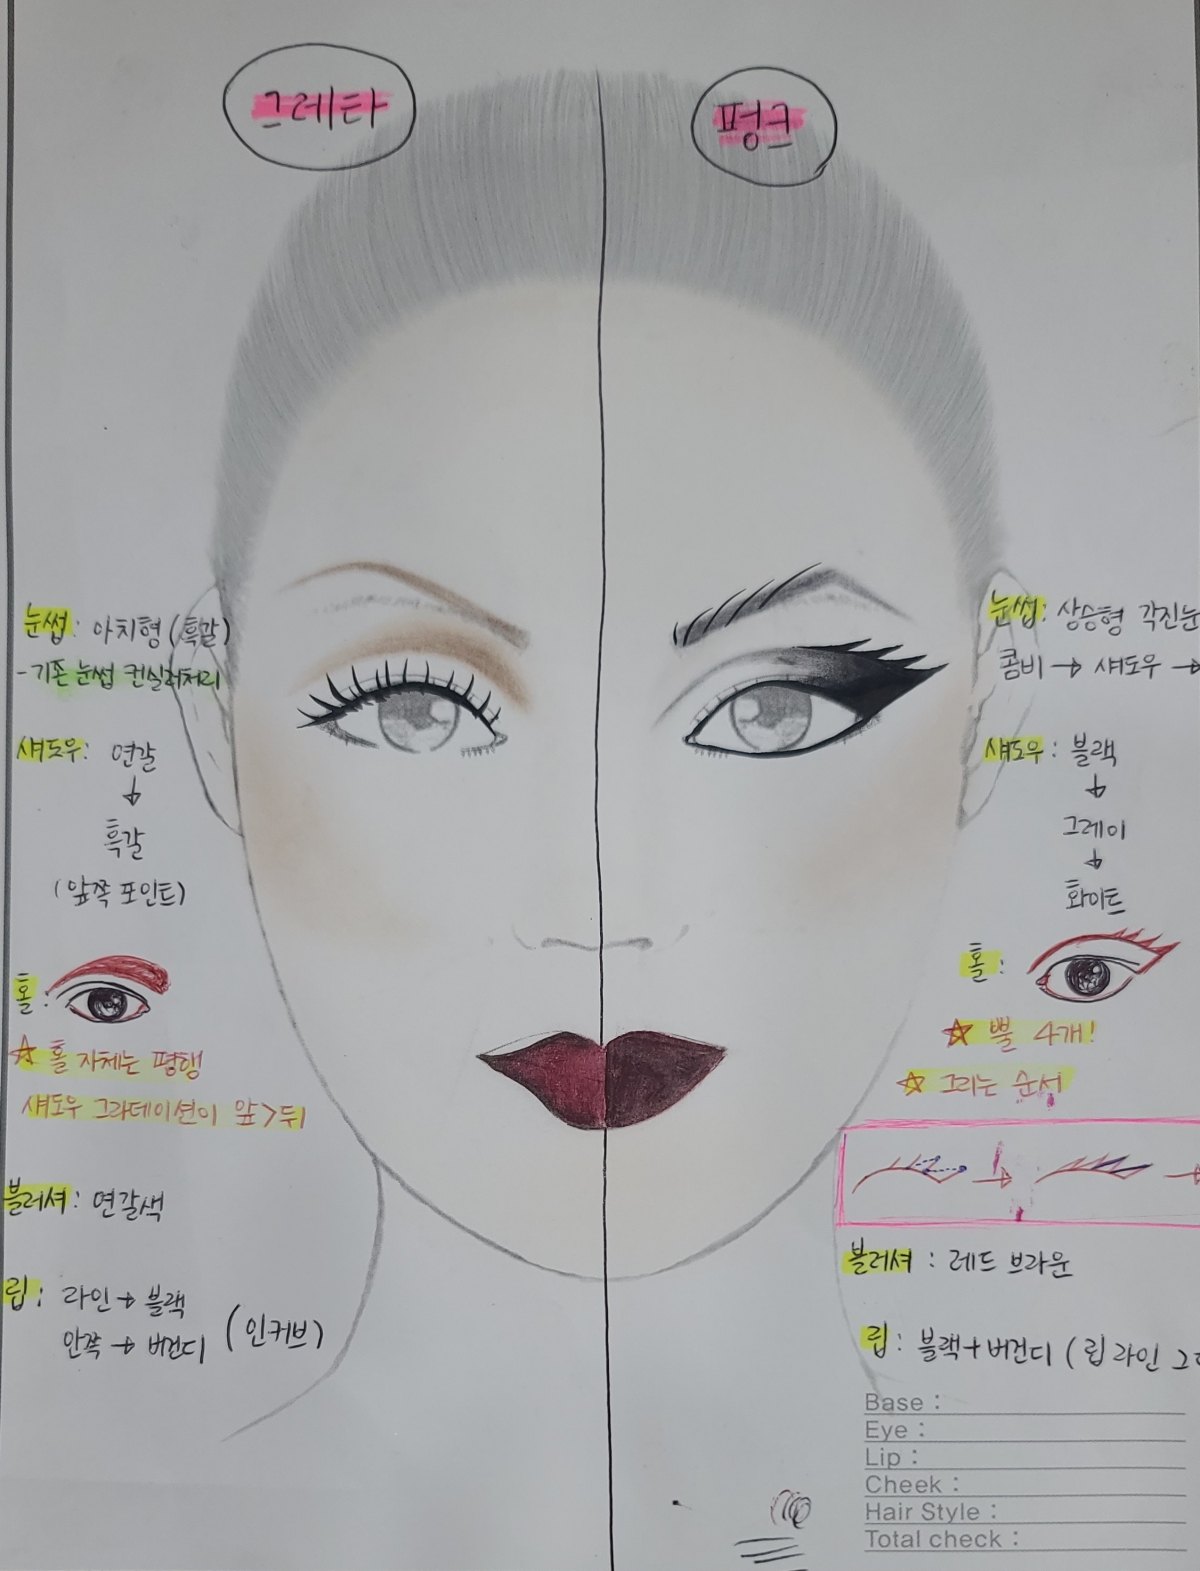 그레타
펑크
눈썹: 아치형 (흑갈)
- 기존 눈썹 컨실러처리
섀도우: 연갈
↓
흑갈
(앞쪽 포인트)
홀:
☆ 홀 자체는 평행
섀도우 그라데이션이 앞>뒤
블러셔: 연갈색
립: 라인 → 블랙
안쪽 → 버건디 (인커브)
눈썹: 상승형 각진눈
콤비 → 섀도우 →
섀도우: 블랙
↓
그레이
↓
화이트
홀:
☆ 뿔 4개!
☆ 그리는 순서
블러셔 : 레드 브라운
립: 블랙+버건디 (립 라인
Base :
Eye :
Lip :
Cheek :
Hair Style :
Total check :